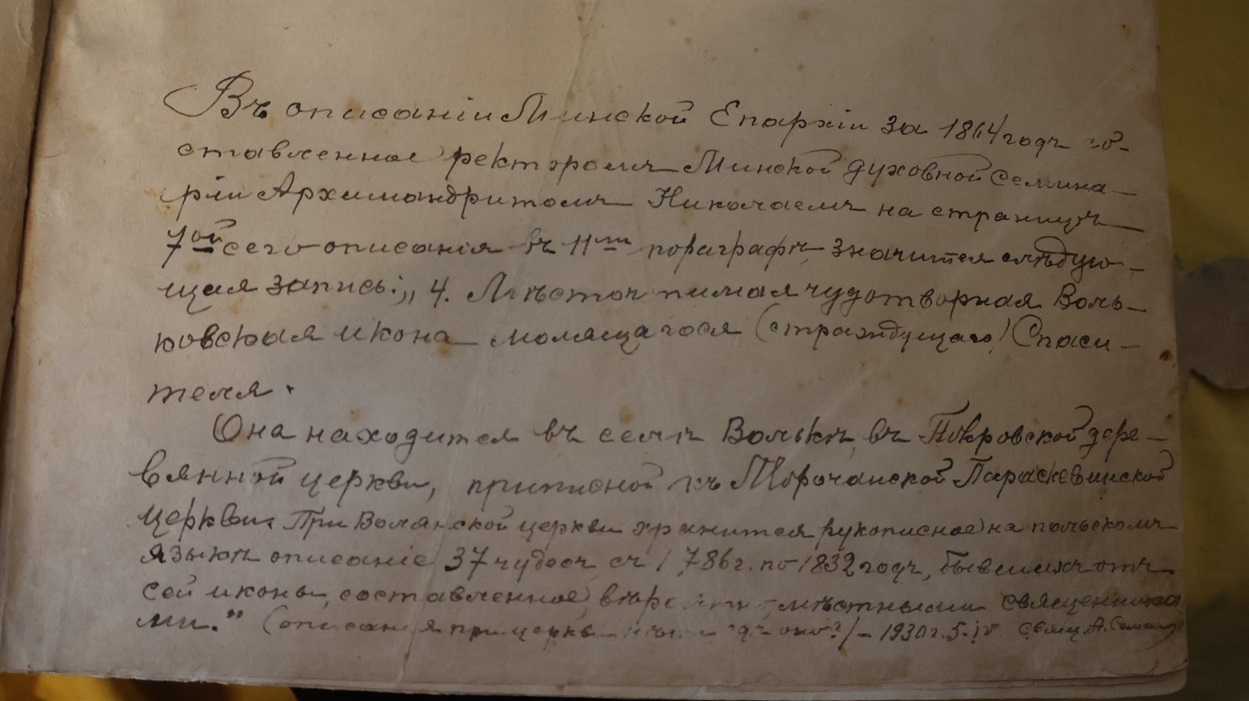 Въ описаніи Минской Епархіи за 1864 годъ со-
ставленное ректоромъ Минской духовной семина-
ріи Архимандритомъ Николаемъ на страницѣ
7ой сего описанія въ 11мъ пораграфѣ, значится слѣдую-
щая запись: „4. Мѣсточтимая чудотворная Воль-
ковская икона молящагося (страждущаго) Спаси-
теля.
Она находится въ селѣ Волькѣ, въ Покровской дере-
вянной церкви, приписной къ Морочанской Параскевинской
церкви. При Волянской церкви хранится рукописное на польскомъ
языкѣ описаніе 37 чудесъ съ 1786г. по 1832 годъ, бывшихъ отъ
сей иконы, составленное, мѣстными священника
ми." (описанія при церкви оно?) – 1930г. 5. IV Свящ. А.